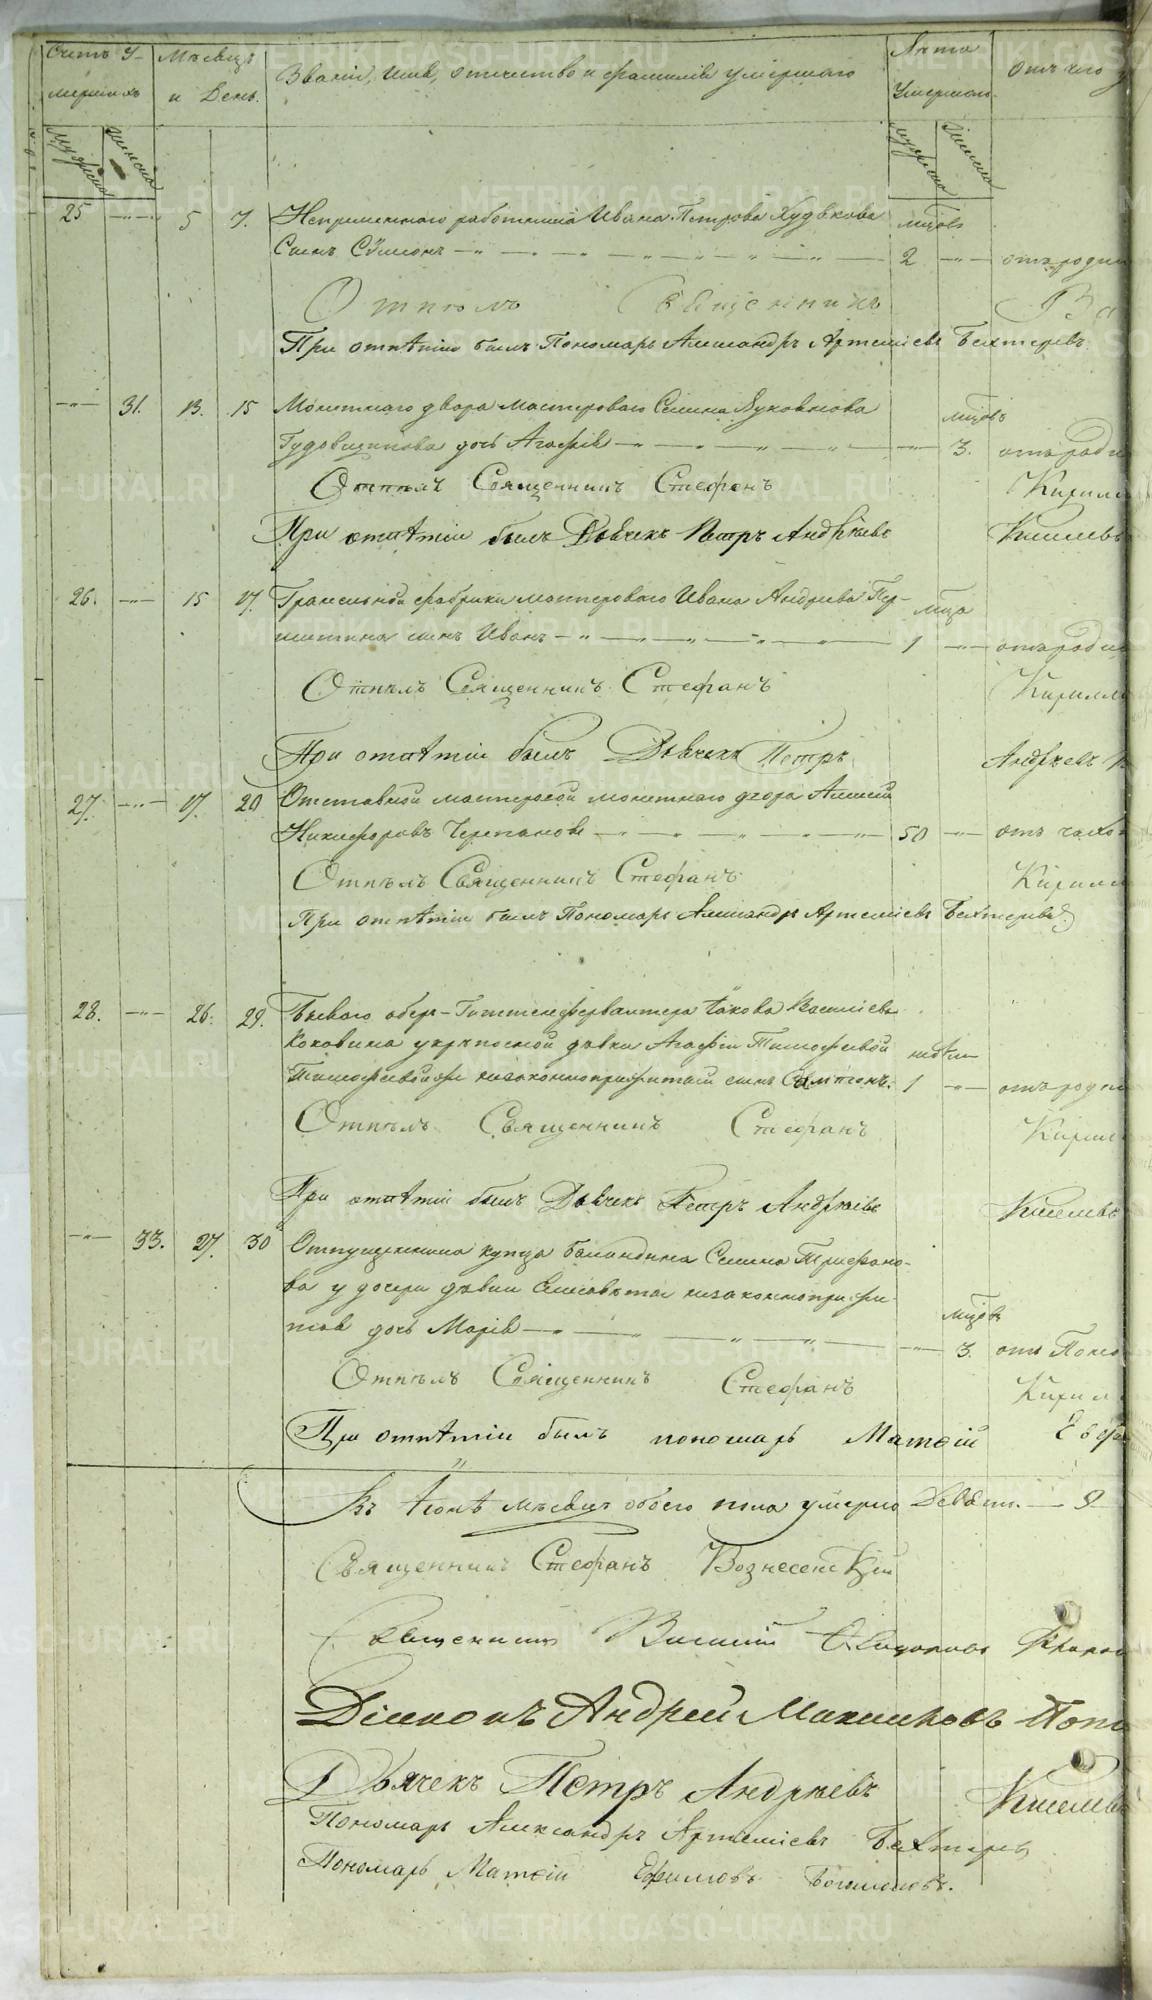 Счетъ У-
мершихъ
Мѣсяцъ
и День.
Званіе, имя, отчество и фамилія умершаго
Лѣта
Умершаго
Отъ чего у
мужеска
женска
мужеска
женска
25 —„— 5 7. Непременнаго работника Ивана Петрова Худякова мѣсяцовъ
Сынъ Сѵмеонъ — 2 —„— отъ родим
Отпѣлъ Священникъ
При отпѣтіи былъ Пономарь Александръ Артеміевъ Бехтеревъ.
—„— 31. 13. 15 Монетнаго двора мастероваго Семена
дочь Агафія — 3. отъ роди
Отпѣлъ Священникъ Стефанъ Кирилл
При отпѣтіи былъ Дьячекъ Петръ Андрѣевъ Киселевъ
26. —„— 15 17. Гранильной фабрики мастероваго Ивана Андреева Пер-
шина сынъ Иванъ — 1 —„— отъ родим
Отпѣлъ Священникъ Стефанъ Кирилло
При отпѣтіи былъ Дьячекъ Петръ Андрѣевъ
27. —„— 17. 20 Отставной мастеровой монетнаго двора Алексѣй
Никифоровъ Черепановъ — 50 —„— отъ чахо
Отпѣлъ Священникъ Стефанъ Кирилл
При отпѣтіи былъ Пономарь Александръ Артеміевъ Бехтеревъ
28. —„— 26. 29. Бывшаго обер-Гиттенфервалтера Іакова Васильева
Коковина укрѣпосной дѣвки Агафіи Тимофеевой недѣли
незаконноприжитый сынъ Сампсонъ. 1 —„— отъ родим
Отпѣлъ Священникъ Стефанъ Кирил
При отпѣтіи былъ Дьячекъ Петръ Андрѣевъ Киселевъ
—„— 33. 27. 30 Отпущенника купца Баландина Семена Трифано-
ва у дочери дѣвки Елисаветы незаконноприжи-
тая дочь Марія — мѣсяцовъ 3. отъ Поно
Отпѣлъ Священникъ Стефанъ Кирил
При отпѣтіи былъ пономарь Матѳій Ефи
Въ Іюнѣ мѣсяцѣ обоего пола умерло Девять. — 9
Священникъ Стефанъ Вознесенскій
Священникъ Василій
Діаконъ Андрей Максимовъ Попо
Дьячекъ Петръ Андрѣевъ Киселевъ
Пономарь Александръ Артеміевъ Бехтеревъ
Пономарь Матѳій Ефимовъ Богомоловъ.
METRIKI.GASO-URAL.RU